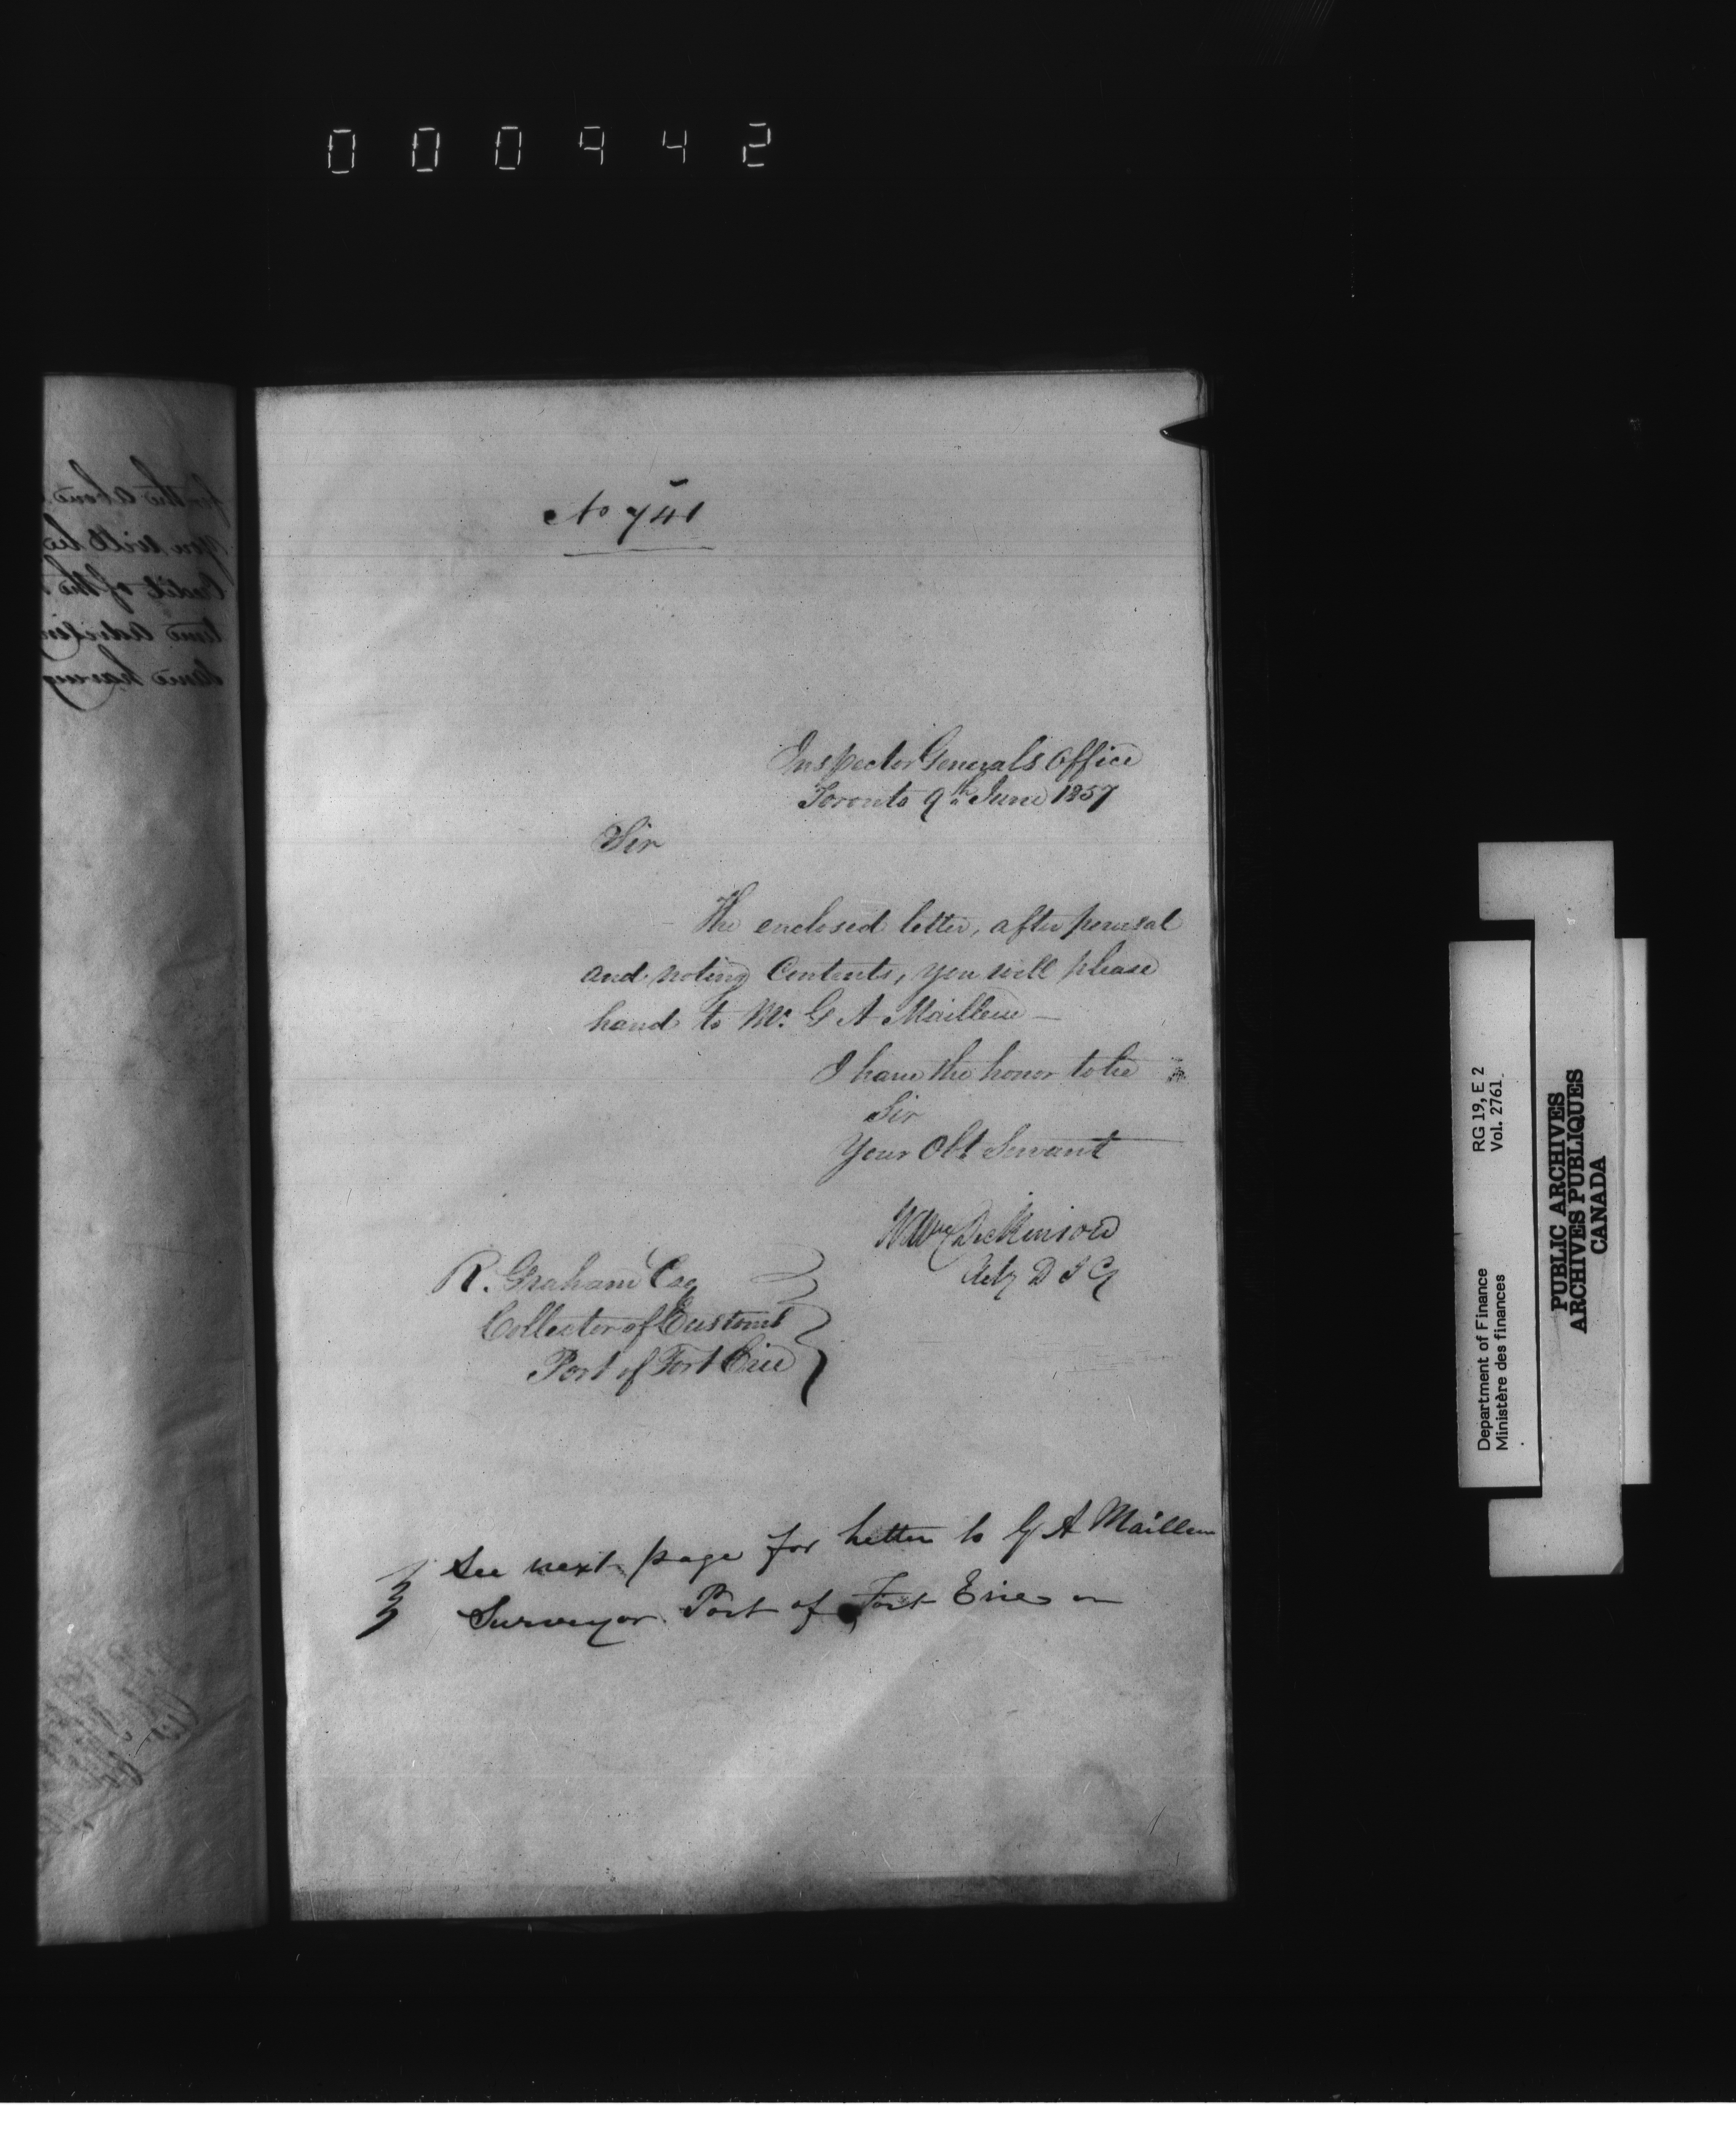 000942
No 741
Inspector Generals Office
Toronto 9th June 1857
Sir
The enclosed letter, after perusal
and noting Contents, you will please
hand to Mr. G A Mailleue —
I have the honor to be
Sir
Your Obt Servant
Wm Dickinson
Actg D I G
R. Graham Esq
Collector of Customs
Port of Fort Erie
See next page for letter to G A Mailleue
Surveyor Port of Fort Erie
for the above
you will be
Credit of the
time advising
same having
Department of Finance RG 19, E 2
Ministère des finances Vol. 2761
PUBLIC ARCHIVES
ARCHIVES PUBLIQUES
CANADA